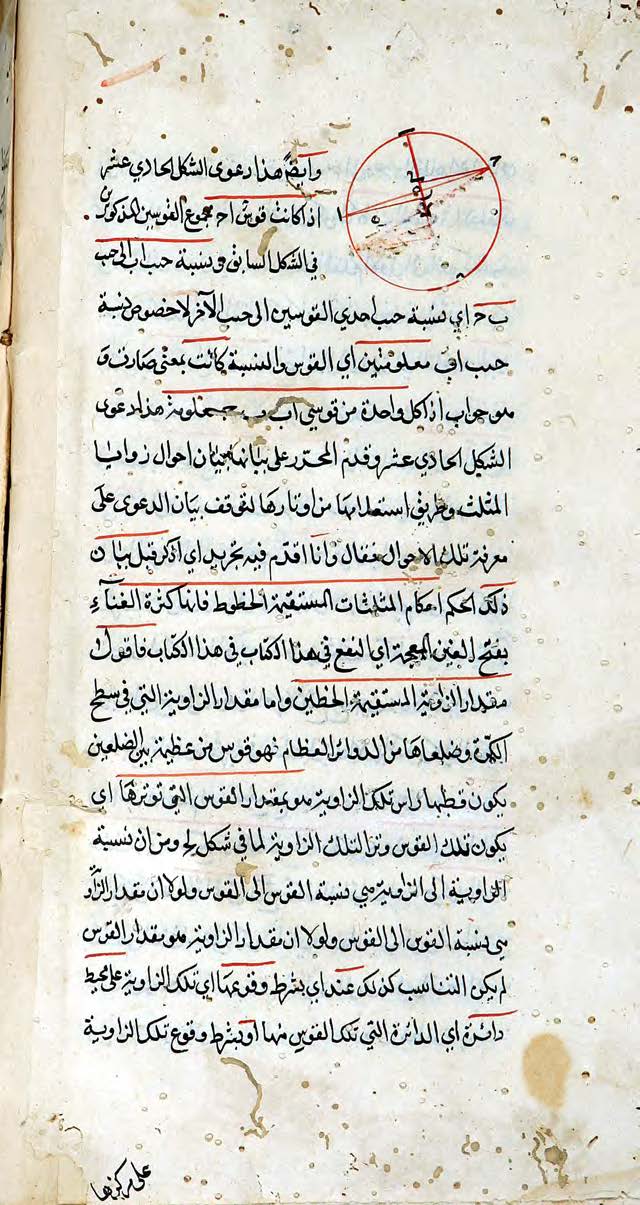 وايضًا هذا دعوى الشكل الحادي عشر
اذا كانت قوس ا ح مجموع القوسين المذكورين
في الشكل السابق ونسبة جيب اب الى جيب
ب ح اي نسبة جيب احدي القوسين الى جيب الآخر لا خصوص نسبة
جيب اب معلومتين اي القوس والنسبة كانت بمعنى صارت و
هو جواب اذا كل واحدة من قوسي اب ب ح معلومة هذا دعوى
الشكل الحادي عشر وقدم المحرر على بيانها بيان احوال زوايا
المثلث وطريق استعلامها من اوتارها لتوقف بيان الدعوى على
معرفة تلك الاحوال فقال وانا اقدم فيه تحريد اي اذكر قبل بيان
ذلك الحكم احكام المثلثات المستقيمة الخطوط فانها كثيرة الغنآء
بفتح الغين المعجمة اي النفع في هذا الكتاب في هذا الكتاب فاقول
مقدار الزاوية المستقيمة الخطين واما مقدار الزاوية التي في سطح
الكرة وضلعاها من الدوائر العظام فهو قوس من عظيمة بين الضلعين
يكون قطبها راس تلك الزاوية هو بمقدار القوس التي توترها اي
يكون تلك القوس وترا لتلك الزاوية لما في شكل لح ومن ان نسبة
الزاوية الى الزاوية هي نسبة القوس الى القوس ولولا ان مقدار الزاو
هي نسبة القوس الى القوس ولولا ان مقدار الزاوية هو بمقدار القوس
لم يكن التناسب كذلك عند اي بشرط وقوعها اي تلك الزاوية على محيط
دائرة اي الدائرة التي تلك القوس منها او بشرط وقوع تلك الزاوية
على مركزها